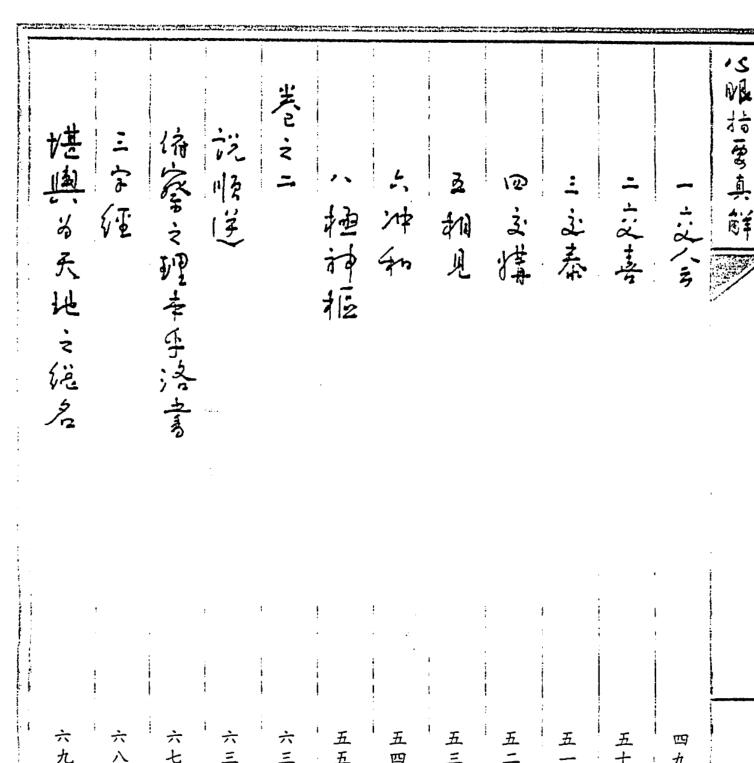 心眼指要真解
一交会 四九
二交喜 五十
三交泰 五一
四交媾 五二
五相見 五三
六冲和 五四
八極神樞 五五
卷之二 六三
説順逆 六三
俯察之理本乎洛書 六七
三字經 六八
堪輿为天地之總名 六九